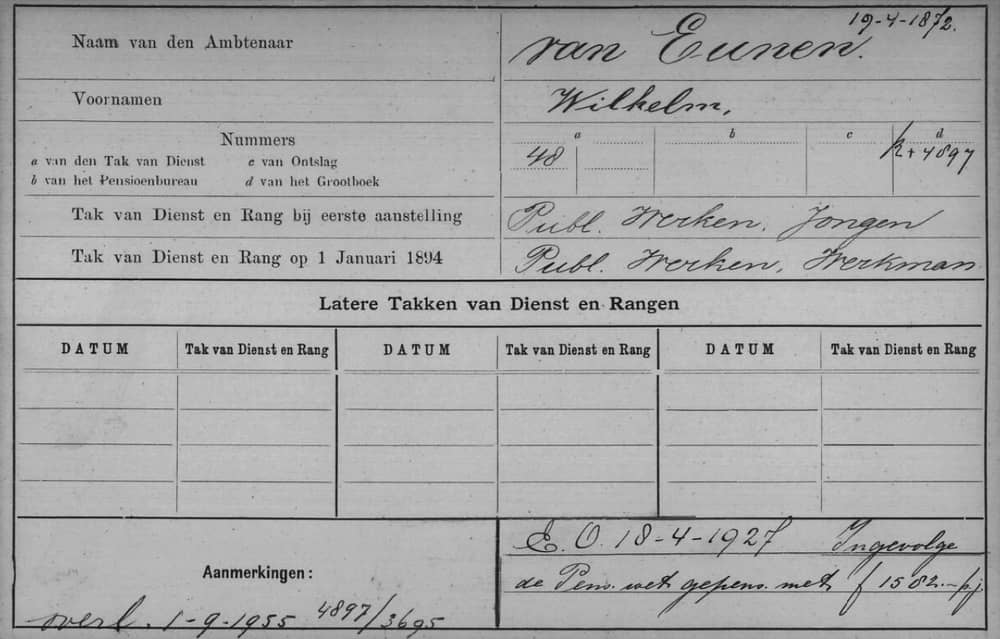 19-4-1872.
Naam van den Ambtenaar van Eunen.
Voornamen Wilhelm,
Nummers
a van den Tak van Dienst c van Ontslag
b van het Pensioenbureau d van het Grootboek
a b c d
48 4897
Tak van Dienst en Rang bij eerste aanstelling Publ. Werken. Jongen
Tak van Dienst en Rang op 1 Januari 1894 Publ. Werken, Werkman
Latere Takken van Dienst en Rangen
DATUM Tak van Dienst en Rang DATUM Tak van Dienst en Rang DATUM Tak van Dienst en Rang
E. O. 18-4-1927 Ingevolge
Aanmerkingen: de Pens. wet gepens. met f 1582.- p.j.
overl. 1-9-1955 4897/3695